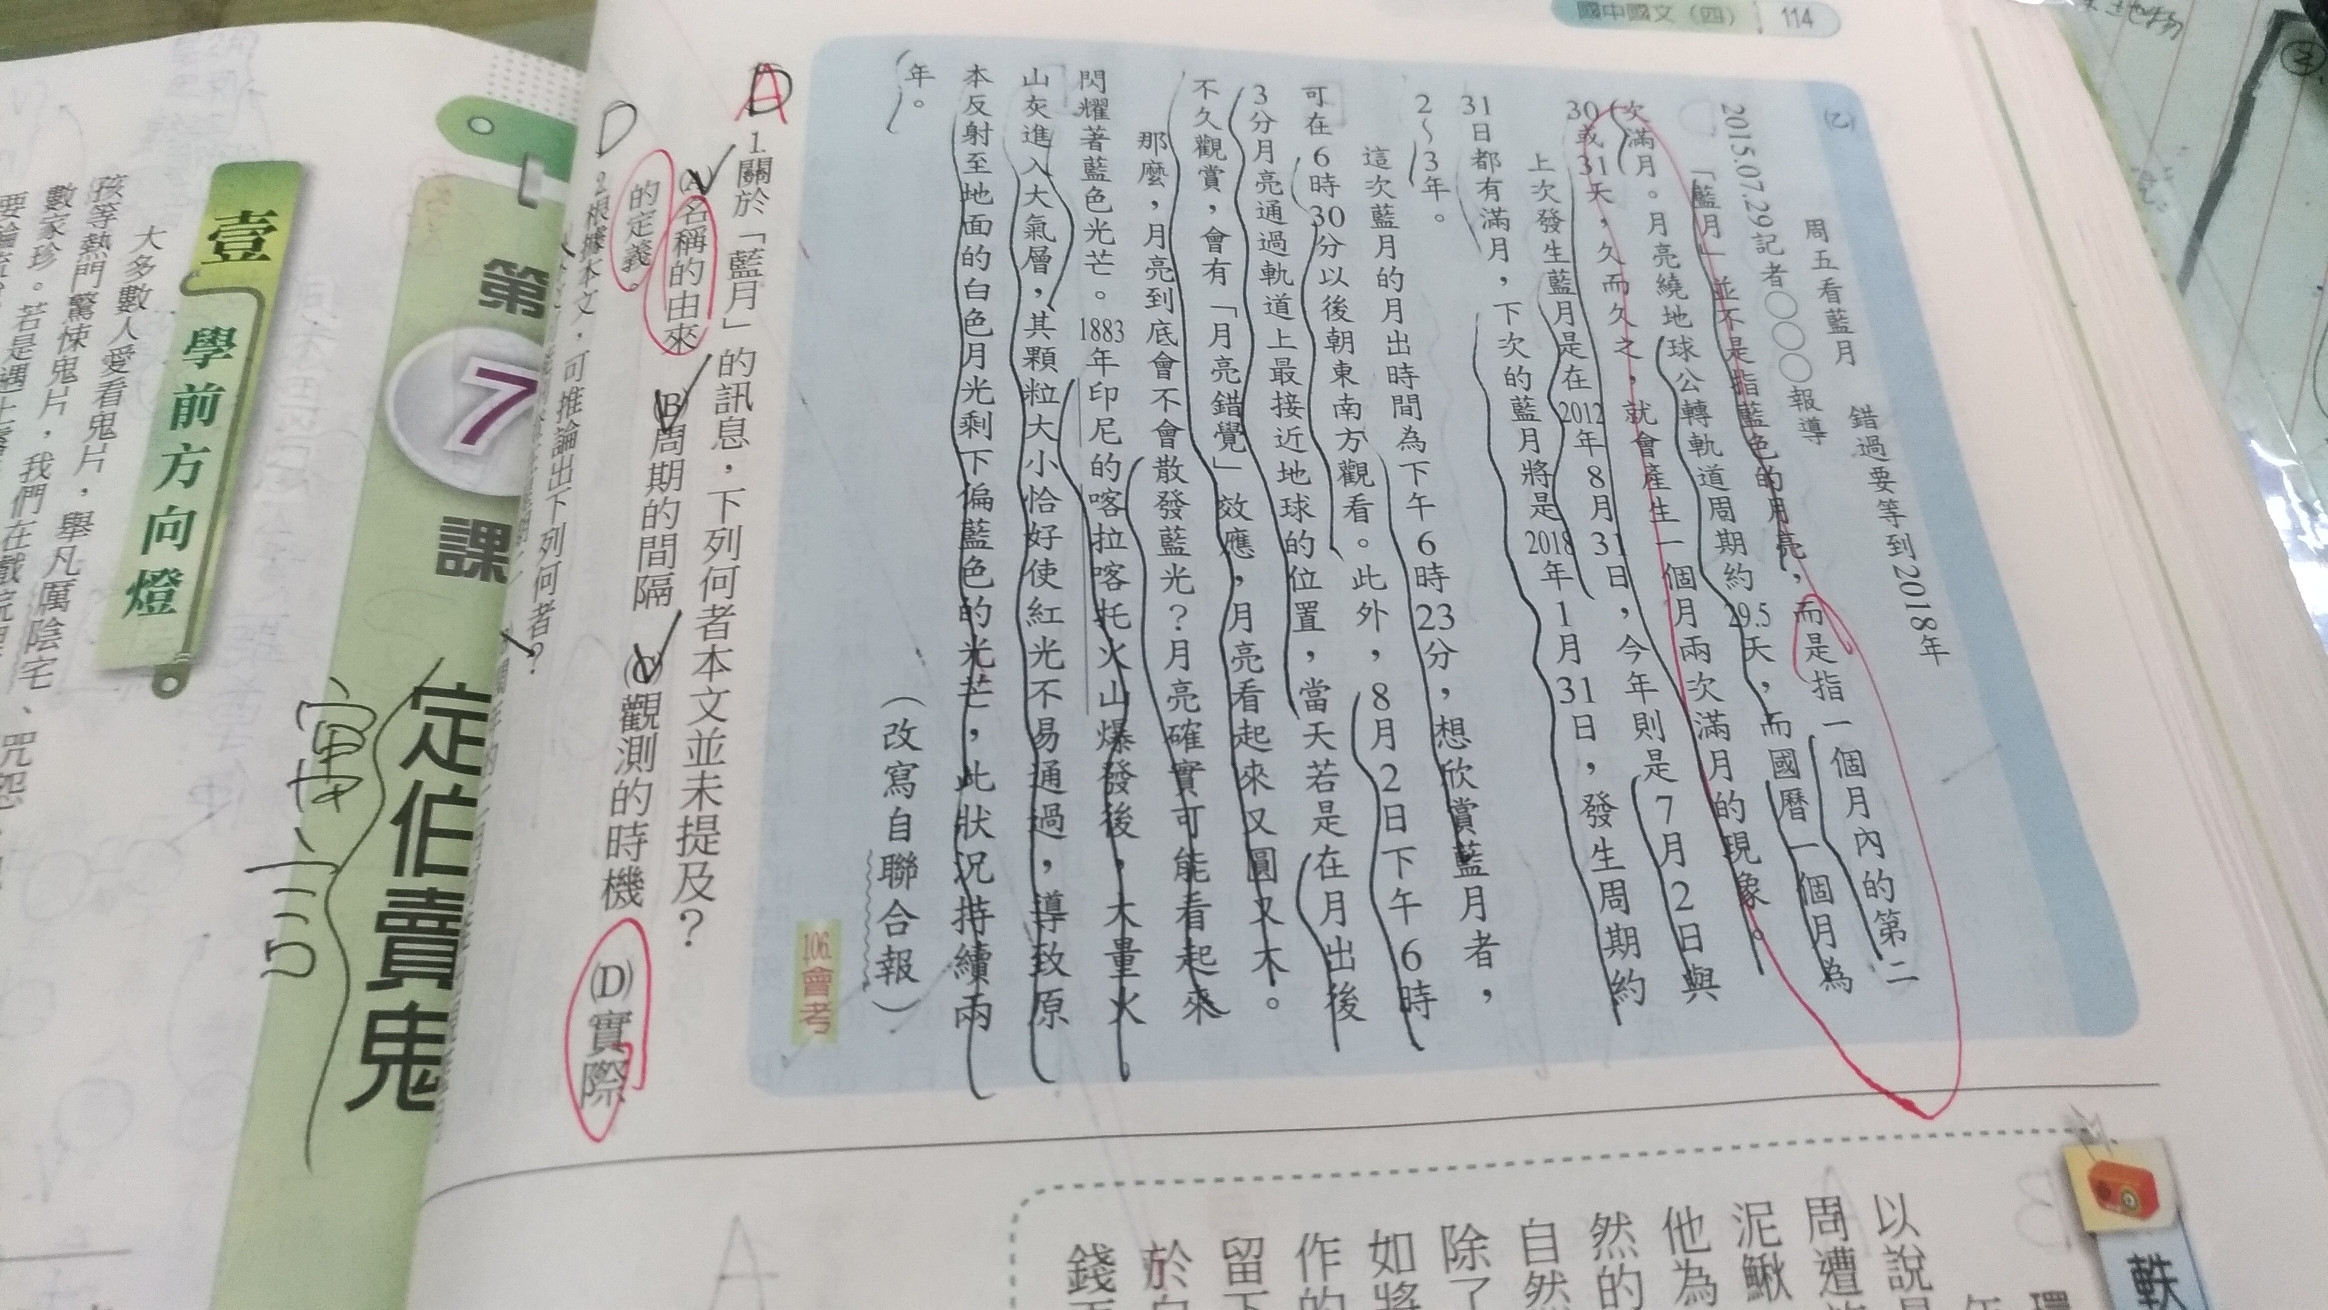 國中國文（四） 114
（乙）
周五看藍月　錯過要等到2018年
2015.07.29記者○○○報導
「藍月」並不是指藍色的月亮，而是指一個月內的第二
次滿月。月亮繞地球公轉軌道周期約29.5天，而國曆一個月為
30或31天，久而久之，就會產生一個月兩次滿月的現象。
上次發生藍月是在2012年8月31日，今年則是7月2日與
31日都有滿月，下次的藍月將是2018年1月31日，發生周期約
2～3年。
這次藍月的月出時間為下午6時23分，想欣賞藍月者，
可在6時30分以後朝東南方觀看。此外，8月2日下午6時
3分月亮通過軌道上最接近地球的位置，當天若是在月出後
不久觀賞，會有「月亮錯覺」效應，月亮看起來又圓又大。
那麼，月亮到底會不會散發藍光？月亮確實可能看起來
閃耀著藍色光芒。1883年印尼的喀拉喀托火山爆發後，大量火
山灰進入大氣層，其顆粒大小恰好使紅光不易通過，導致原
本反射至地面的白色月光剩下偏藍色的光芒，此狀況持續兩
年。
（改寫自聯合報）
106.會考
A
D
1.關於「藍月」的訊息，下列何者本文並未提及？
(A)名稱的由來　(B)周期的間隔　(C)觀測的時機　(D)實際
的定義。
D
2.根據本文，可推論出下列何者？
第7課
定伯賣鬼
壹 學前方向燈
大多數人愛看鬼片，舉凡厲陰宅、咒怨
孩等熱門驚悚鬼片，我們在戲院
數家珍。若是遇上
軼
以說
周遭
泥鰍
他為
然的
自然
除了
如將
作的
留下
於
錢